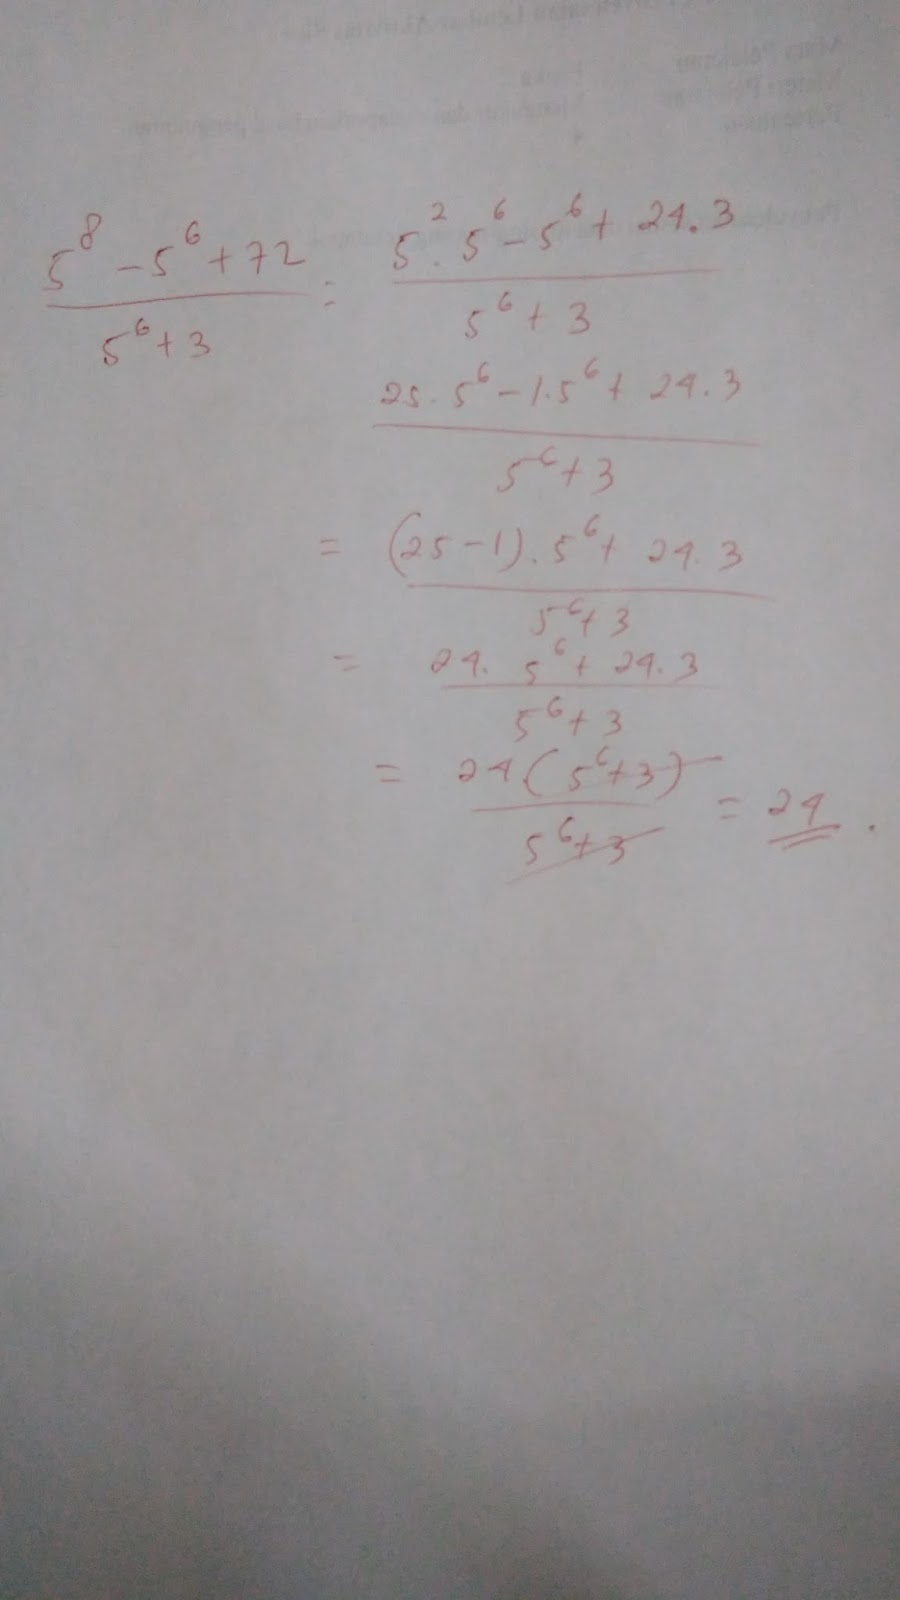 5^8 - 5^6 + 72 / 5^6 + 3 = 5^2 . 5^6 - 5^6 + 24 . 3 / 5^6 + 3
25 . 5^6 - 1 . 5^6 + 24 . 3 / 5^6 + 3
= (25 - 1) . 5^6 + 24 . 3 / 5^6 + 3
= 24 . 5^6 + 24 . 3 / 5^6 + 3
= 24 (5^6 + 3) / 5^6 + 3 = 24 .